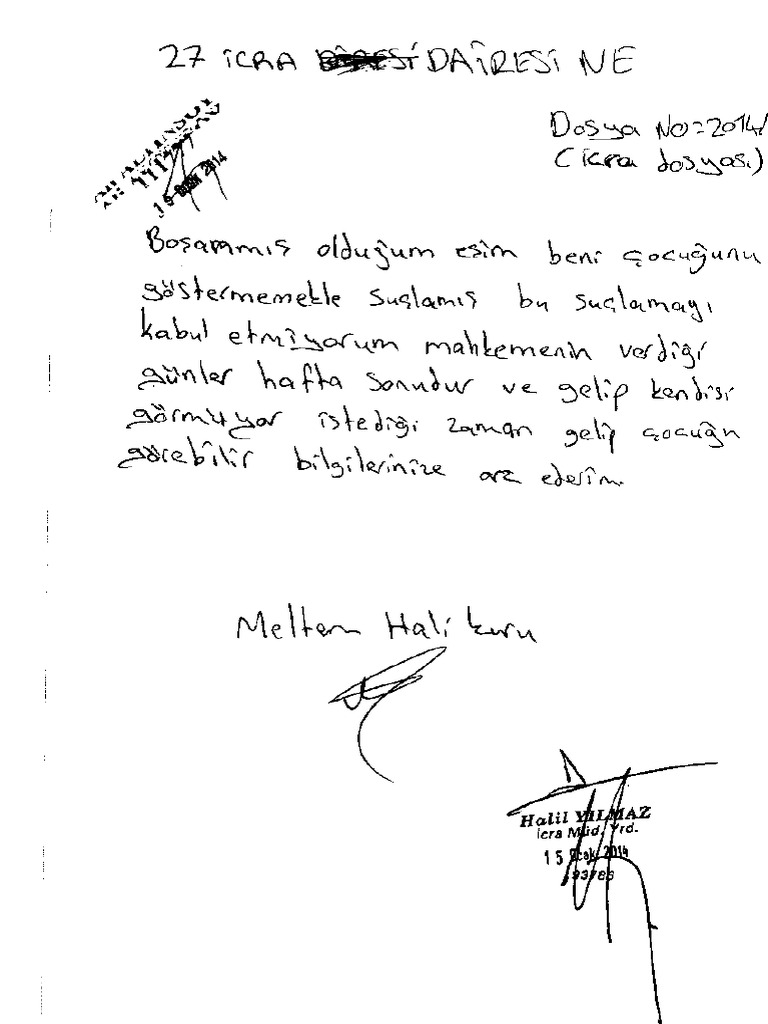 27 İCRA DAİRESİ NE
Dosya No=2014/
(İcra dosyası)
15 Ocak 2014
Boşanmış olduğum eşim beni çocuğunu
göstermemekle suçlamış bu suçlamayı
kabul etmiyorum mahkemenin verdiği
günler hafta sonudur ve gelip kendisi
görmüyor istediği zaman gelip çocuğu
görebilir bilgilerinize arz ederim.
Meltem Halikuru
Halil YILMAZ
İcra Müd. Yrd.
15 Ocak 2014
93786